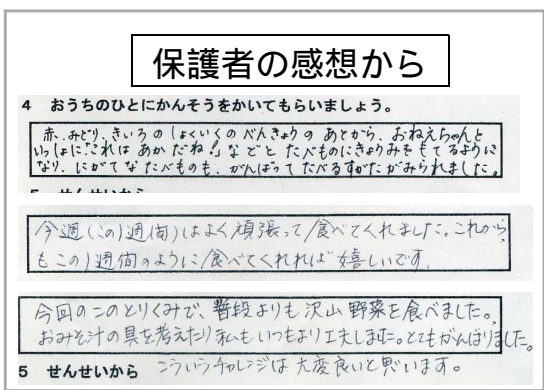 保護者の感想から
4 おうちのひとにかんそうをかいてもらいましょう。
赤、みどり、きいろの しょくいくの べんきょうの あとから、おねえちゃんと
いっしょに「これは あかだね!」などと たべものにきょうみを もてるように
なり、にがてな たべものも、がんばって たべる すがたがみられました。
今週(この1週間)はよく頑張って食べてくれました。これから
もこの1週間のように食べてくれれば嬉しいです。
今回のこのとりくみで、普段よりも沢山野菜を食べました。
おみそ汁の具を考えたり私もいつもより工夫しました。とてもがんばりました。
こういうチャレンジは大変良いと思います。
5 せんせいから